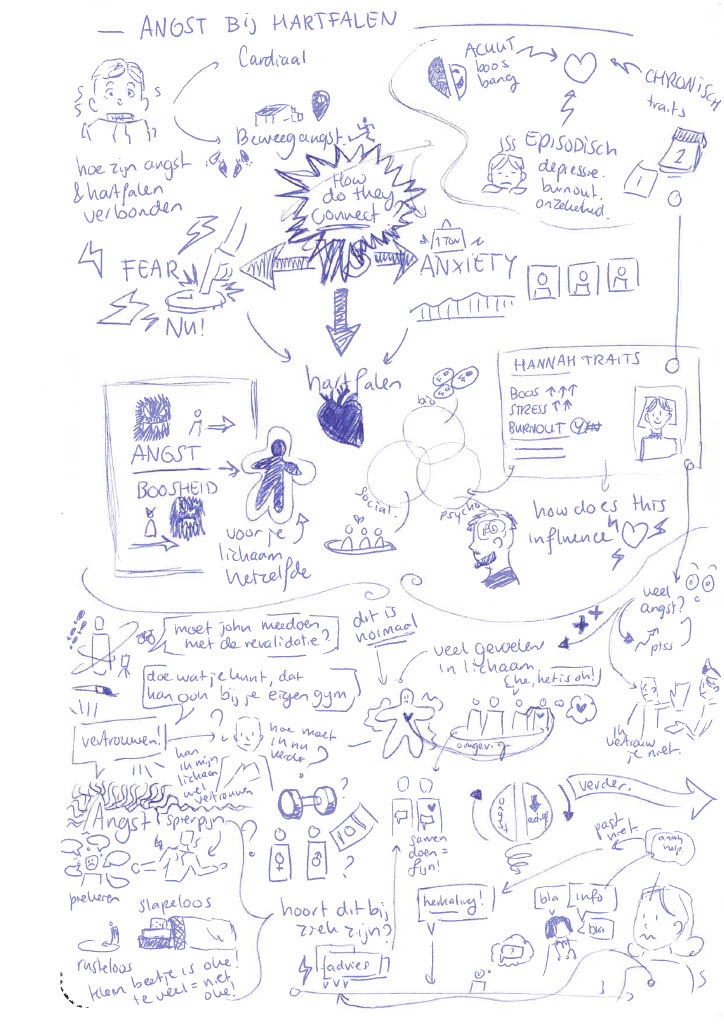 ANGST BIJ HARTFALEN
Cardiaal
Beweegangst
hoe zijn angst
& hartfalen
verbonden
ACUUT
boos
bang
CHRONISCH
traits
EPISODISCH
depressie.
burnout.
onzekerheid.
1
2
How
do they
connect
FEAR
NU!
1 TON
ANXIETY
hartfalen
ANGST
BOOSHEID
voor je
lichaam
hetzelfde
bio
social.
psycho
HANNAH TRAITS
BOOS ↑↑↑
STRESS ↑↑
BURNOUT
how does this
influence
veel
angst?
ptss
moet john meedoen
met de revalidatie?
doe wat je kunt, dat
kan ook bij je eigen gym
dit is
normaal
veel gevoelen
in lichaam
he, het is oké!
omgeving
ik
vertrouw
je niet.
vertrouwen!
kan
ik mijn
lichaam
wel
vertrouwen
?
hoe moet
ik nu
verder
?
Angst
spierpijn
piekeren
slapeloos
rusteloos
klein beetje is oke!
te veel = niet
oke!
?
?
10
?
hoort dit bij
ziek zijn?
advies
samen
doen =
fijn!
verder.
past
niet.
herhaling!
bla
info
bla